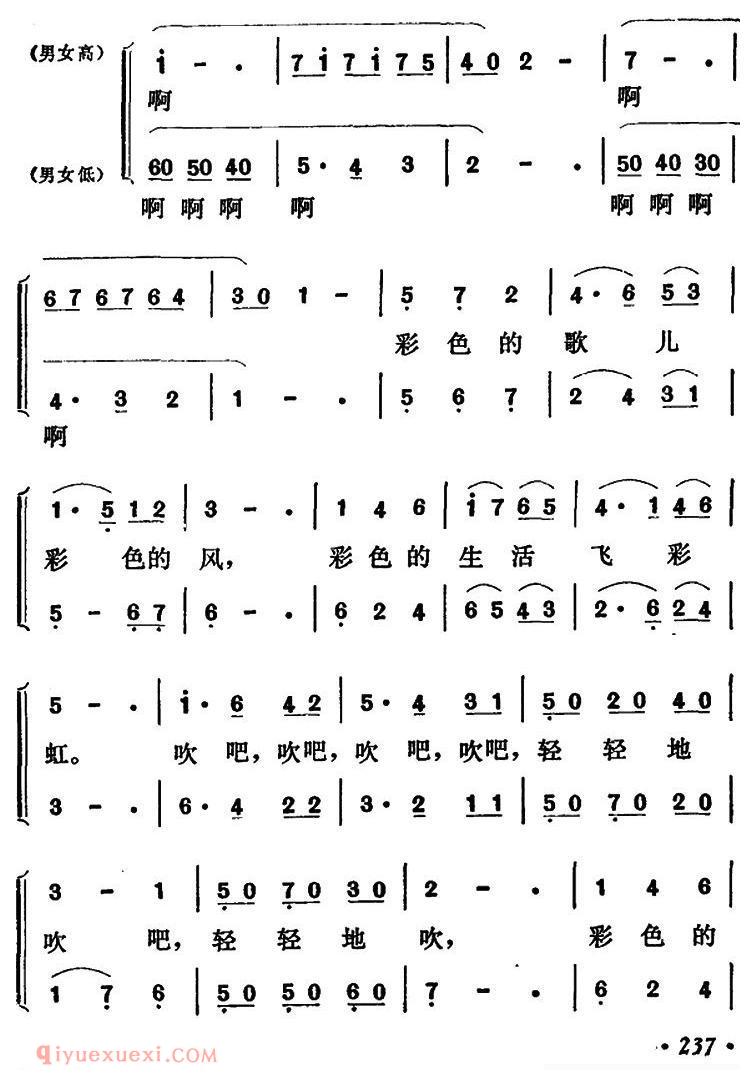 (男女高) i - · | 7 i 7 i 7 5 | 4 0 2 - | 7 - · |
啊 啊
(男女低) 60 50 40 | 5 · 4 3 | 2 - · | 50 40 30 |
啊 啊 啊 啊 啊 啊 啊
6 7 6 7 6 4 | 3 0 1 - | 5 7 2 | 4 · 6 5 3 |
彩 色 的 歌 儿
4 · 3 2 | 1 - · | 5 6 7 | 2 4 3 1 |
啊
1 · 5 1 2 | 3 - · | 1 4 6 | i 7 6 5 | 4 · 1 4 6 |
彩 色的 风, 彩 色 的 生 活 飞 彩
5 - 6 7 | 6 - · | 6 2 4 | 6 5 4 3 | 2 · 6 2 4 |
5 - · | i · 6 4 2 | 5 · 4 3 1 | 5 0 2 0 4 0 |
虹。 吹 吧, 吹吧, 吹 吧, 吹吧, 轻 轻 地
3 - · | 6 · 4 2 2 | 3 · 2 1 1 | 5 0 7 0 2 0 |
3 - 1 | 5 0 7 0 3 0 | 2 - · | 1 4 6 |
吹 吧, 轻 轻 地 吹, 彩 色 的
1 7 6 | 5 0 5 0 6 0 | 7 - · | 6 2 4 |
qiyuexuexi.com
· 237 ·